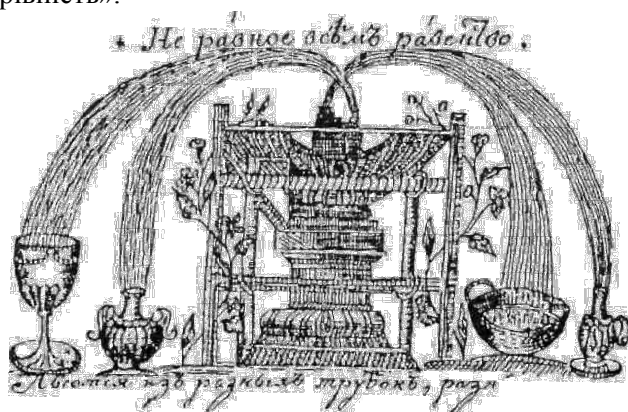 рівність».
. Не равное всѣмъ равенство.
Льются изъ разныхъ трубокъ, разн